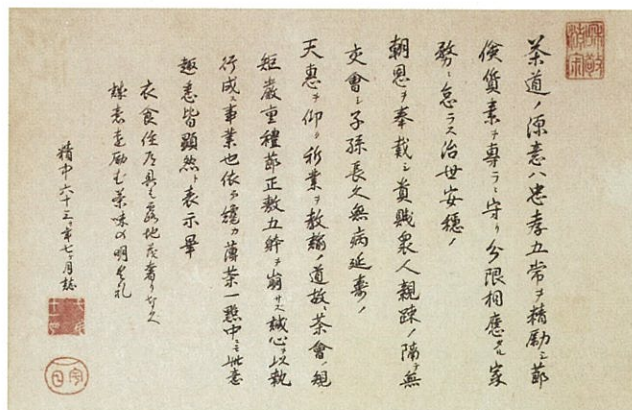 茶道ノ源意ハ忠孝五常ヲ精励シ節
倹質素ヲ専ラニ守リ分限相應ナル家
務ニ怠ラス治世安穏ノ
朝恩ヲ奉戴シ貴賤衆人親疎ノ隔ヲ無
交會シ子孫長久無病延壽ノ
天惠ヲ仰ク所業ヲ教諭ノ道故ニ茶會ノ規
矩嚴重禮節正敷五躰ヲ崩サス誠心ヲ以執
行成ス事業也依テ纔カ薄茶一點中ニモ此意
趣悉皆顯然ト表示畢
衣食住道具も露地茂奢りなく
意を励む茶味の明
精中六十三年七ヶ月誌